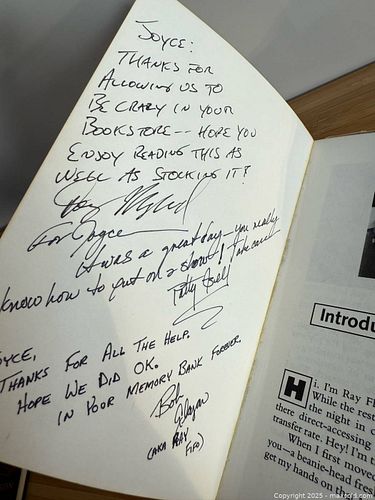 JOYCE:
THANKS FOR
ALLOWING US TO
BE CRAZY IN YOUR
BOOKSTORE -- HOPE YOU
ENJOY READING THIS AS
WELL AS STOCKING IT!
For Joyce
It was a great day—you really
know how to put on a show! Take care
Patty
OYCE,
THANKS FOR ALL THE HELP.
HOPE WE DID OK.
IN YOUR MEMORY BANK FOREVER.
Bob
(AKA RAY
FIFO)
Introdu
Hi. I'm Ray FI
While the rest
the night in c
there direct-accessing
transfer rate. Hey! I'm
When I first moved
you—a beanie-head fres
get my hands on the
Copyright 2025 - maxsold.com